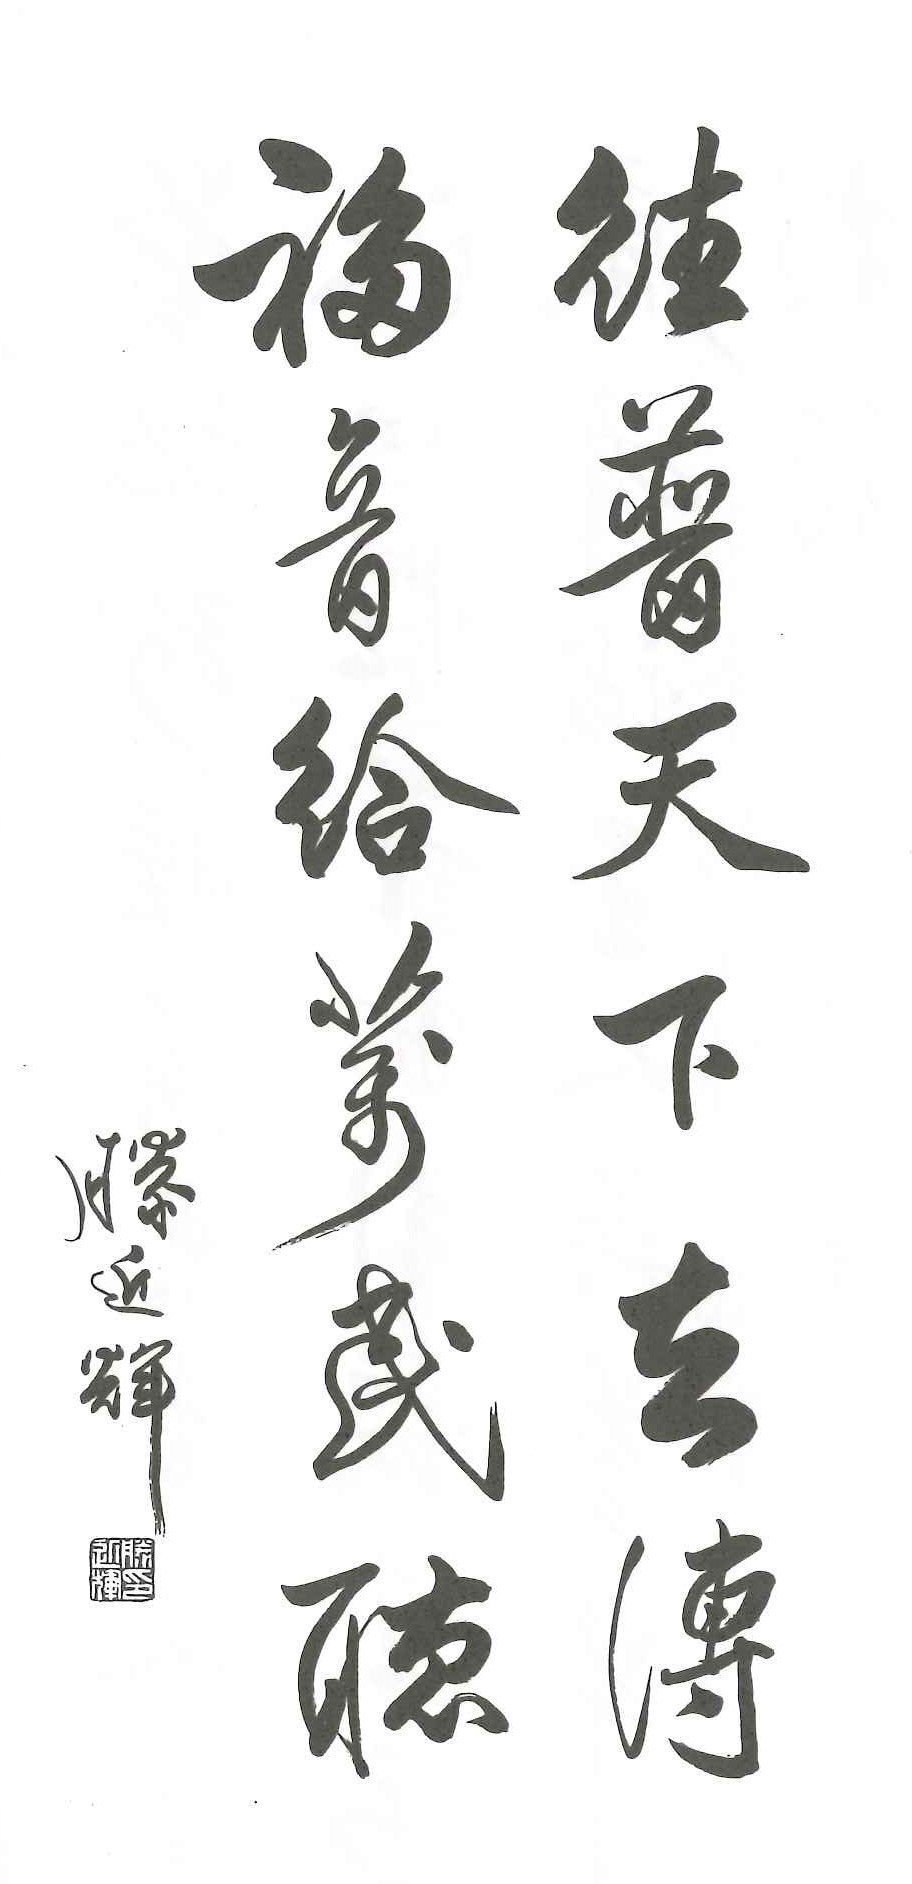 往普天下去傳
福音給萬民聽
滕近輝
滕印近輝